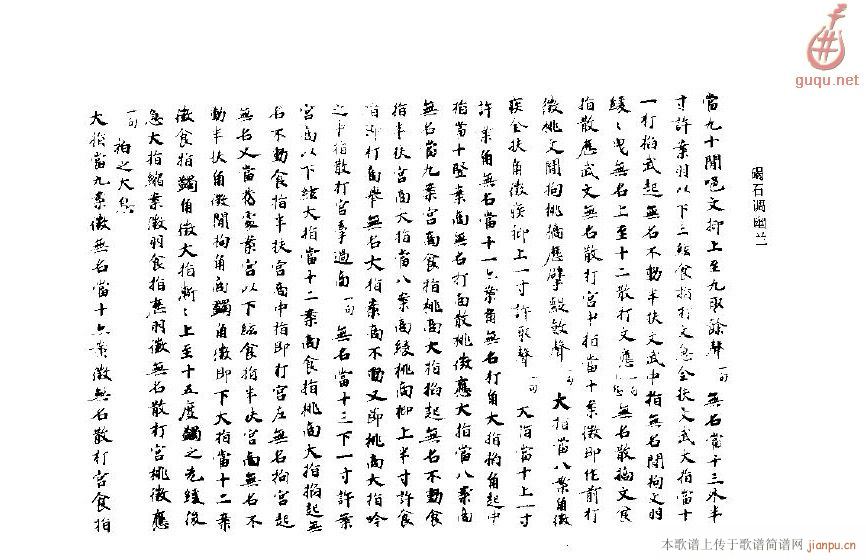 碣石调幽兰
當九十間喛文抑上至九取餘聲一句無名當十三外半
寸許案羽以下三絃食指打文急全扶文武大指當十
一打掐武起無名不動半扶文武中指無名間拘文羽
緩〻無名上至十二散打文應一句無名散摘文食
指散應武文無名散打宮中指當十案徵即作前打
徵挑文間拘挑摘應擘敏聲一句大指當八案角徵
疾全扶角徵疾抑上一寸許取聲一句大指當十上一寸
許案角無名當十一案角無名打角大指掐角起中
指當十案商無名打商散挑徵應大指當八案商
無名當九案宮商食指挑商大指掐起無名不動食
指半扶宮商大指當八案商緩挑商抑上半寸許食
指即打商無名大指案商不動又即挑商大指吟
之中指散打宮過商一句無名當十三下一寸許案
宮商以下絃大指當十二案商食指挑商大指掐起無
名不動食指半扶宮商中指即打宮無名拘宮起
無名又當舊處案宮以下絃食指半扶宮商無名不
動半扶角徵間拘角商躅角徵即下大指當十二案
徵食指躅角徵大指漸〻上至十五度躅之先緩後
急大指縮案徵羽食指應羽徵無名散打宮挑徵應
一句拍之大息
大指當九案徵無名當十案徵無名散打宮食指
本歌谱上传于歌谱简谱网 jianpu.cn
guqu.net